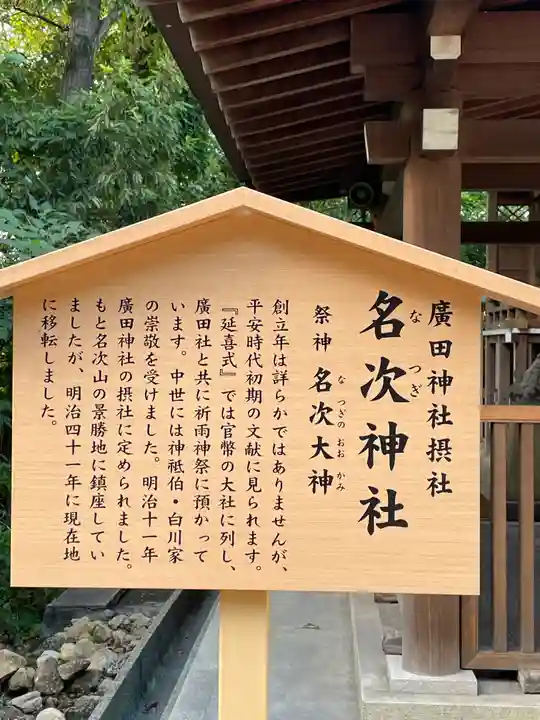 廣田神社摂社
名次神社
な つぎ
祭神 名次大神
な つぎの おお かみ
創立年は詳らかではありませんが、
平安時代初期の文献に見られます。
『延喜式』では官幣の大社に列し、
廣田社と共に祈雨神祭に預かって
います。中世には神祗伯・白川家
の崇敬を受けました。明治十一年
廣田神社の摂社に定められました。
もと名次山の景勝地に鎮座してい
ましたが、明治四十一年に現在地
に移転しました。